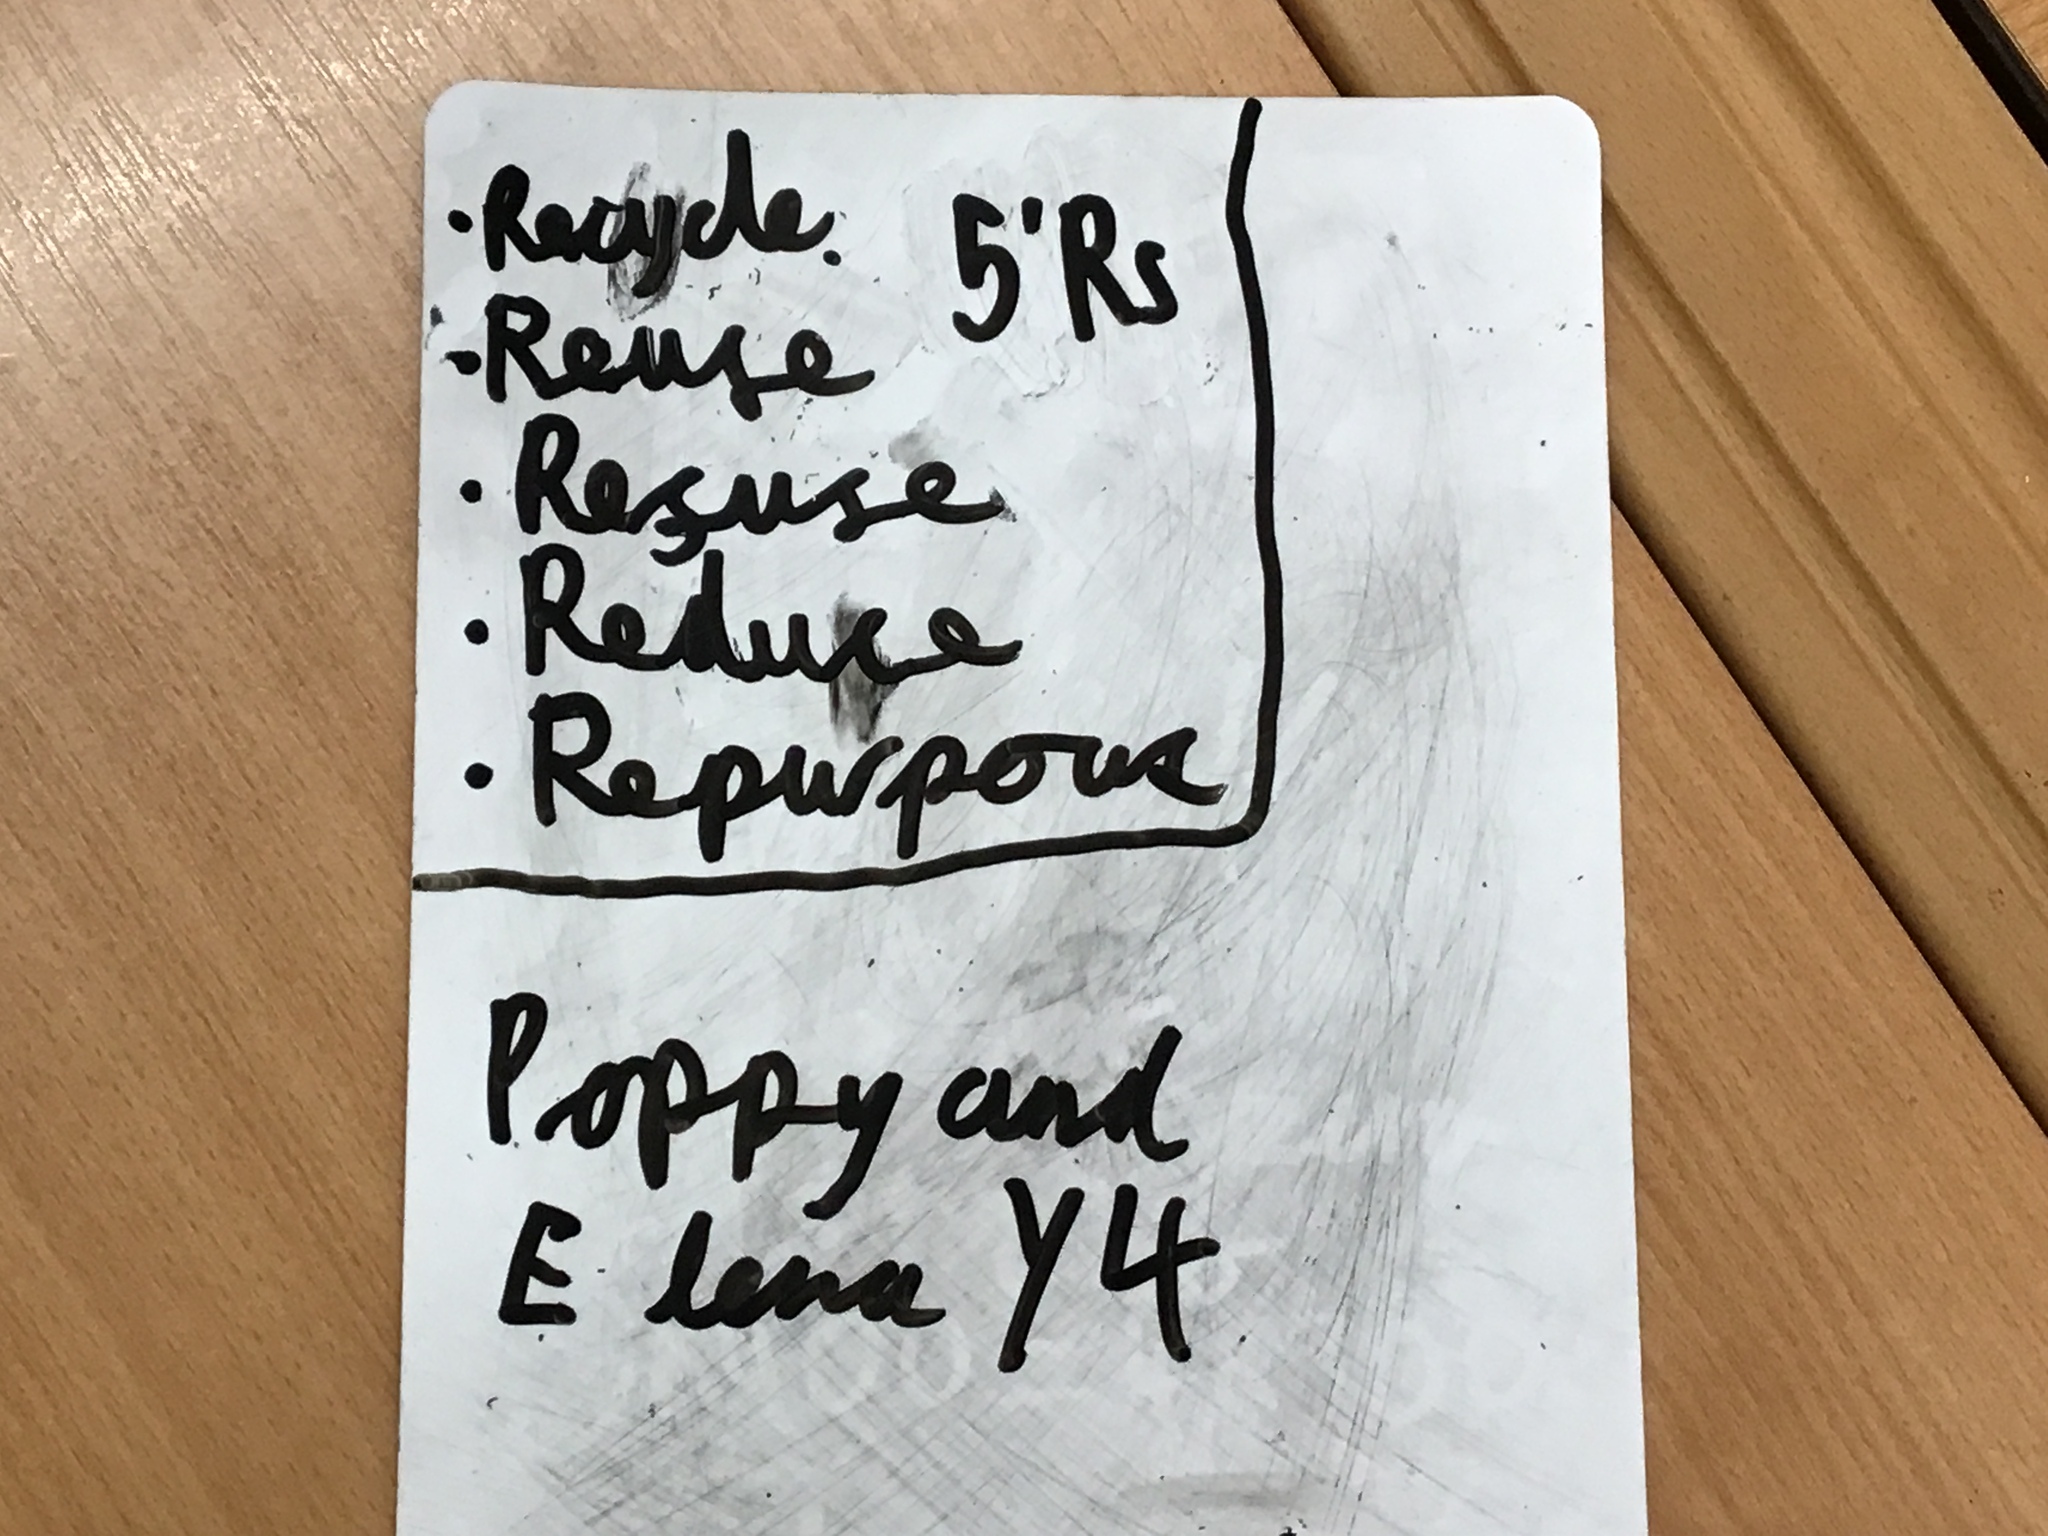 • Recycle. 5'Rs
• Reuse
• Refuse
• Reduce
• Repurpous
Poppy and
Elena Y4